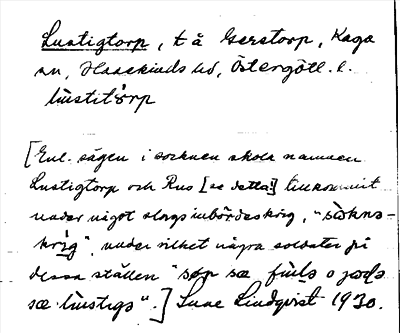 Lustigtorp, t å Gerstorp, Kaga
sn, Hanekinds hd, Östergötl. l.
lùstitòrp
[Enl. sägen i socknen skola namnen
Lustigtorp och Rus [se detta] tillkommit
under något slags inbördeskrig, "sòkna-
krìg", under vilket några soldater på
dessa ställen "søp sæ fùla o
sæ lùstiga".] Sune Lindqvist 1930.